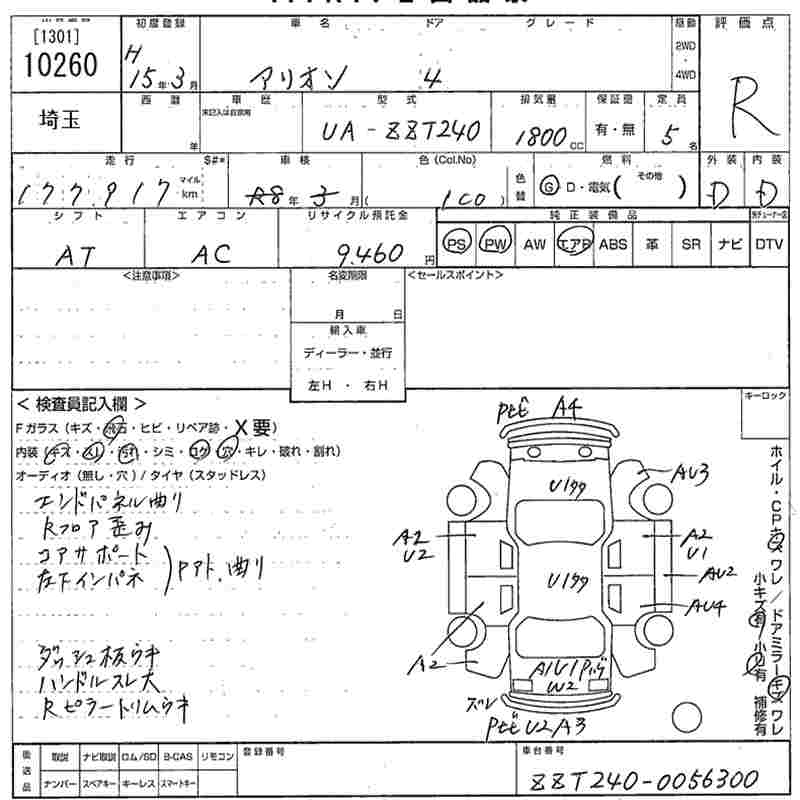 [1301]
10260
初度登録 車名 ドア グレード 駆動 評価点
H 15年3月 アリオン 4 2WD・4WD R
埼玉
西暦 年 車歴 未記入は自家用 型式 UA-ZZT240 排気量 1800cc 保証書 有・無 定員 5名
走行 S#* 177,917 マイル km 車検 R8年3月 色(Col.No) (1C0) 色替 燃料 G・D・電気( その他 ) 外装 D 内装 D
シフト エアコン リサイクル預託金 純正装備品
AT AC 9,460円 PS PW AW エアB ABS 革 SR ナビ DTV
<注意事項> 名変期限 <セールスポイント>
月 日
輸入車
ディーラー・並行
左H・右H
<検査員記入欄> キーロック
Fガラス(キズ・飛石・ヒビ・リペア跡・X要)
内装(キズ・ヨレ・汚れ・シミ・コゲ・穴・キレ・破れ・割れ)
オーディオ(無し・穴)/タイヤ(スタッドレス)
エンドパネル曲り
Rフロア歪み
コアサポート
左下インパネ
Pアト、曲り
ダッシュ板ウキ
ハンドルスレ大
Rピラートリムウキ
PセビA4
U1タタ
AU3
A2
U2
A2
U1
U1タタ
AU2
AU4
A2
A1U1
W2
ズレ
PセビU2A3
ホイル・CPキズワレ/ドアミラーキズワレ
小キズ有 小凹有 補修有
後送品 取説 ナビ取説 ロム/SD B-CAS リモコン 登録番号 車台番号
ナンバー スペアキー キーレス スマートキー ZZT240-0056300